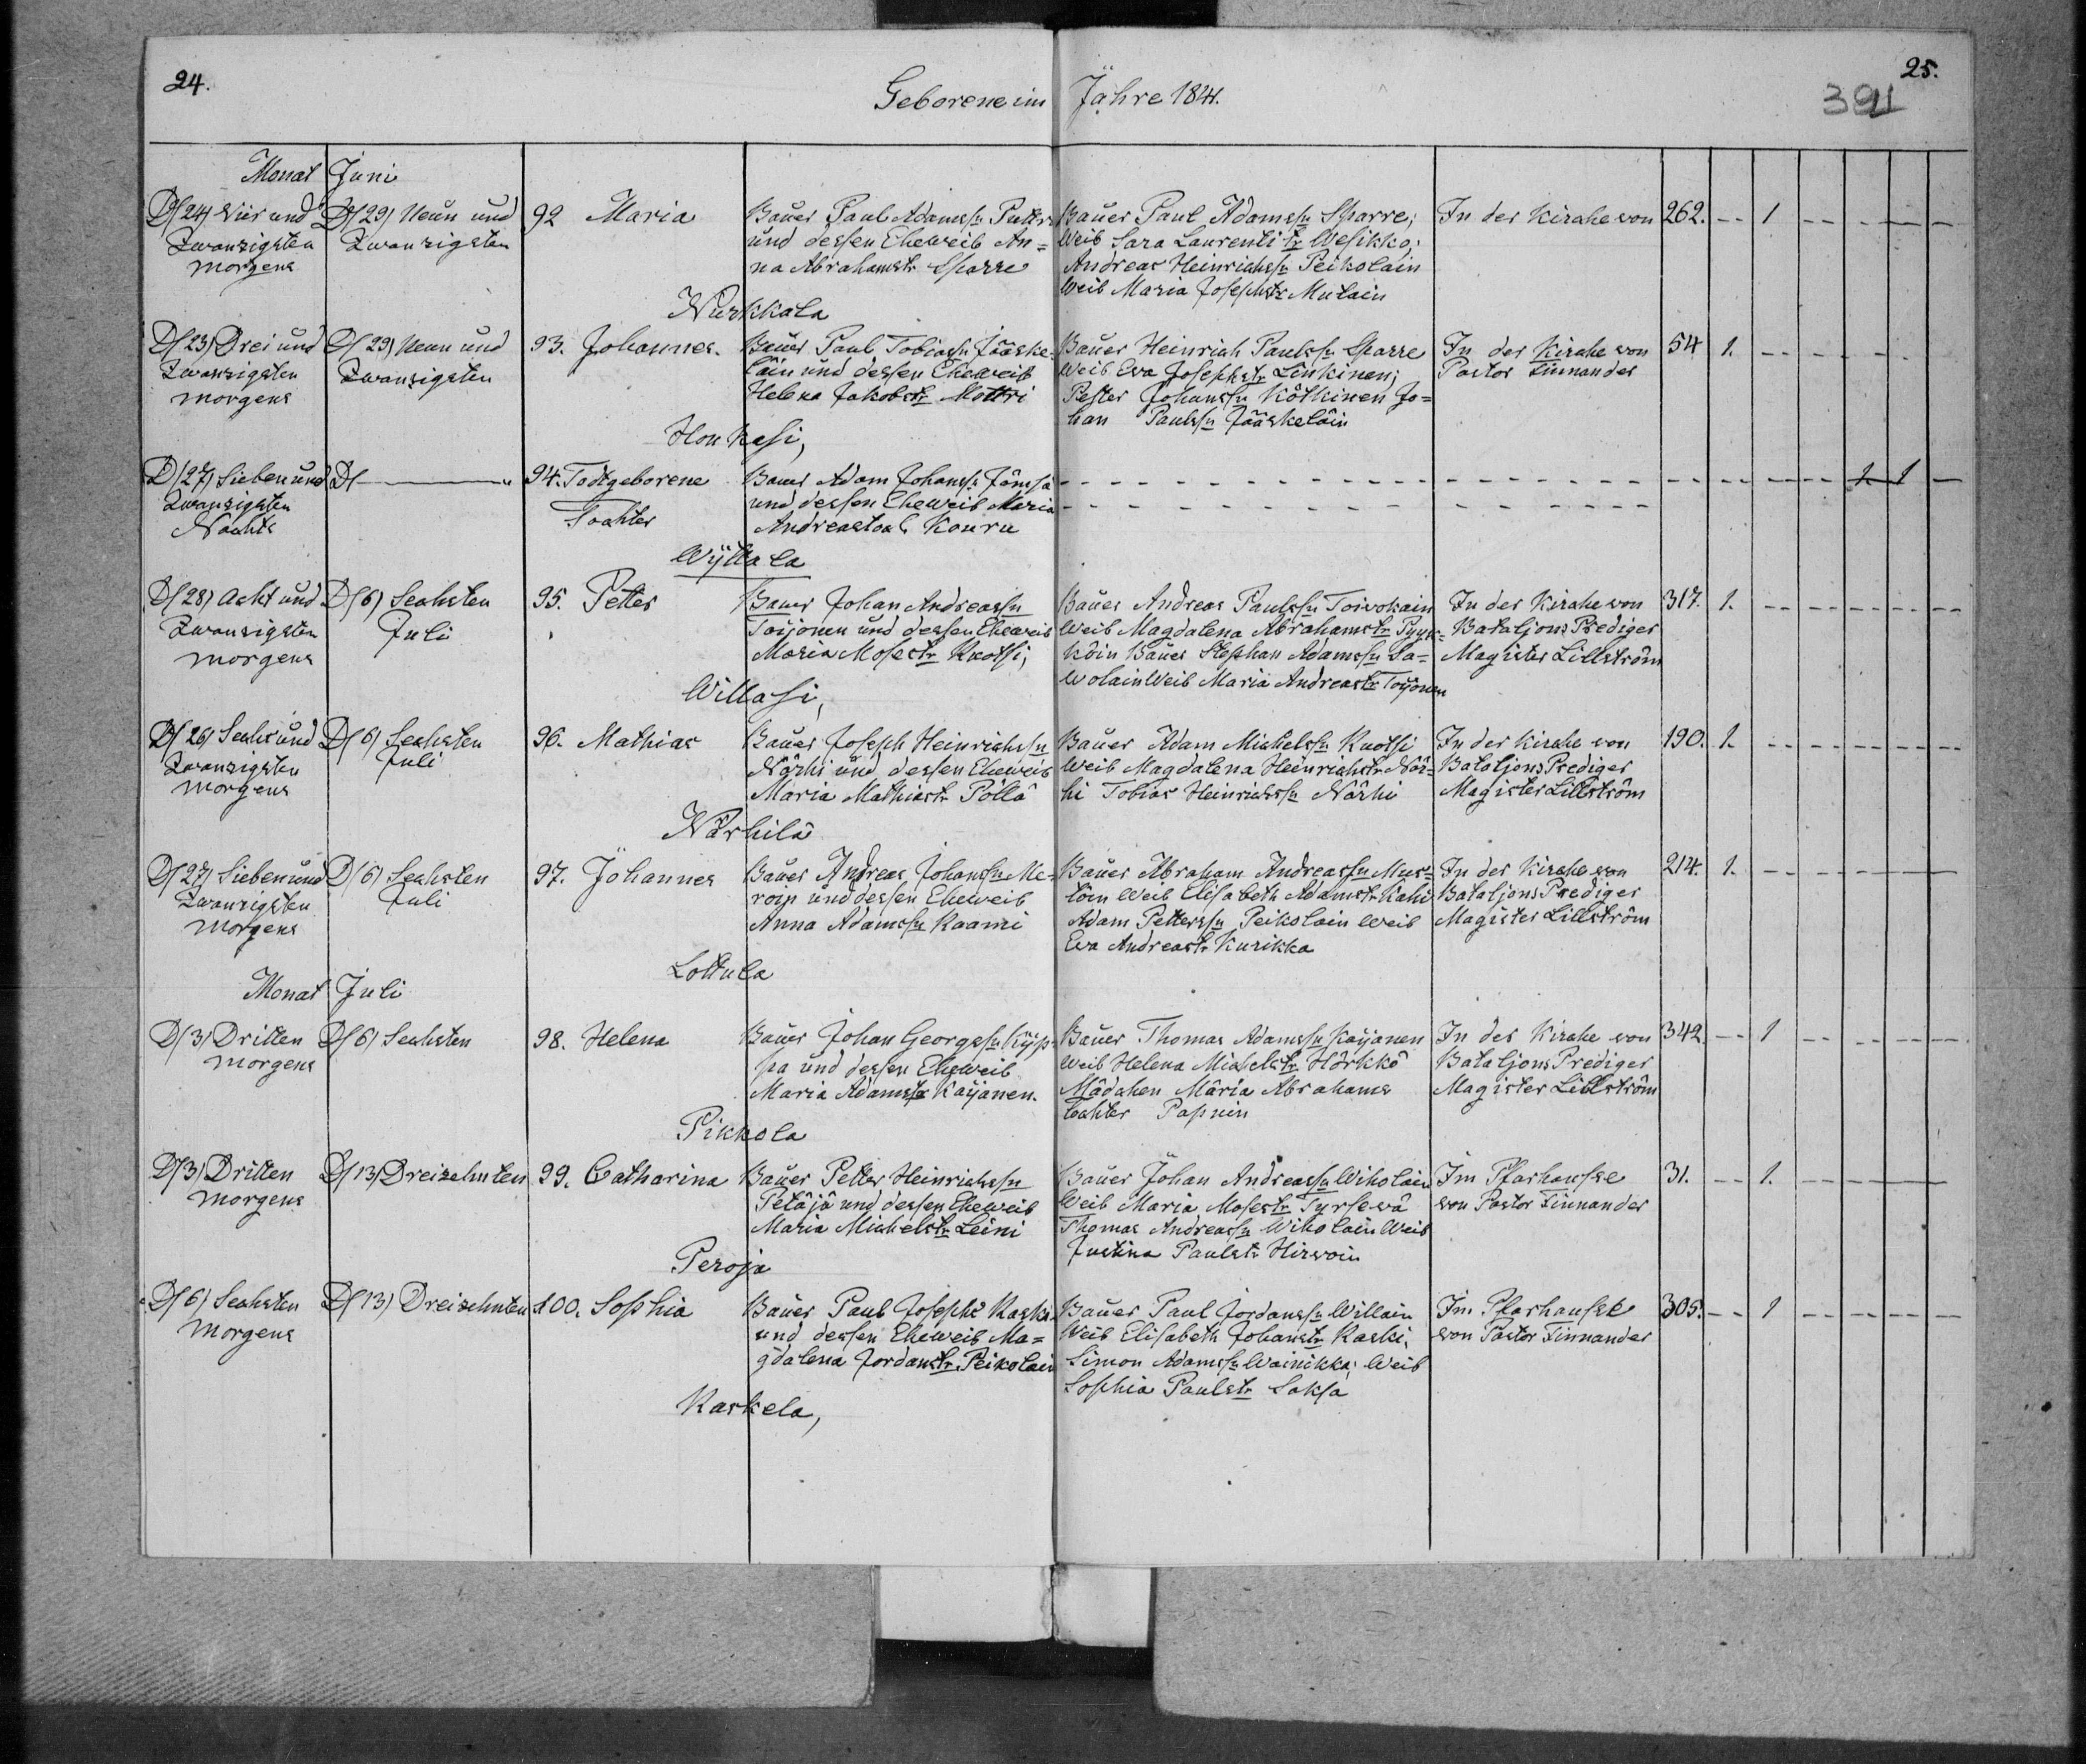 24.
25.
391
Geborene im Jahre 1841.
Monat Juni
D/24) Vier und Zwanzigsten morgens
D/29) Neun und Zwanzigsten
92 Maria
Bauer Paul Adamssn
und dessen Eheweib An=
na Abrahamstr Sparre
Bauer Paul Adamssn Sparre;
Weib Sara Laurentitr Wesikko;
Andreas Heinrichssn Peikolain
Weib Maria Josephstr Mulain
In der Kirche von
262. -- 1 -- -- -- -- --
Nurkkala
D/23) Drei und Zwanzigsten morgens
D/29) Neun und Zwanzigsten
93. Johannes.
Bauer Paul Tobiassn Jääske-
läin und dessen Eheweib
Helena Jakobstr Mottri
Bauer Heinrich Paulssn Sparre
Weib Eva Josephstr Linkinen;
Petter Johanssn Kötkinen Jo=
han Paulssn Jääskeläin
In der Kirche von
Pastor Finnander
54 1. -- -- -- -- --
Honkasi,
D/27) Sieben und Zwanzigsten Nachts
D/ ——— "
94. Todtgeborene
Tochter
Bauer Adam Johanss. Jämsä
und dessen Eheweib Maria
Andreastoch Kouru
1 1
Wÿllola
D/28) Acht und Zwanzigsten morgens
D/6) Sechsten Juli
95. Petter
Bauer Johan Andreassn
Toijonen und dessen Eheweib
Maria Mosestr Kuotsi,
Bauer Andreas Paulssn Toivokain
Weib Magdalena Abrahamstr Pyyk=
köin Bauer Stephan Adamssn Sa=
wolain Weib Maria Andreastr Toijonen
In der Kirche von
Bataljons Prediger
Magister Lillström
317. 1. -- -- -- -- -- --
Willasi,
D/26) Sechs und Zwanzigsten morgens
D/6) Sechsten Juli
96. Mathias
Bauer Joseph Heinrichssn
Närhi und dessen Eheweib
Maria Mathiastr Pöllä
Bauer Adam Michelssn Kuotsi
Weib Magdalena Heinrichstr När=
hi Tobias Heinrichssn Närhi
In der Kirche von
Bataljons Prediger
Magister Lillström
190. 1. -- -- -- -- -- --
Närhilä
D/27) Sieben und Zwanzigsten morgens
D/6) Sechsten Juli
97. Johannes
Bauer Andreas Johanssn Me-
roin und dessen Eheweib
Anna Adamssn Kaami
Bauer Abraham Andreassn Mus=
töin Weib Elisabeth Adamstr Kahi
Adam Petterssn Peikolain Weib
Eva Andreastr Kurikka
In der Kirche von
Bataljons Prediger
Magister Lillström
214. 1. -- -- -- -- -- --
Lottula
Monat Juli
D/3) Dritten morgens
D/6) Sechsten
98. Helena
Bauer Johan Georgssn Küp-
pa und dessen Eheweib
Maria Adamstr Kaijanen.
Bauer Thomas Adamssn Kaijanen
Weib Helena Michelstr Hörkkö
Mädchen Maria Abrahams
tochter Papuin
In der Kirche von
Bataljons Prediger
Magister Lillström
342. -- 1 -- -- -- -- --
Pikkola
D/3) Dritten morgens
D/13) Dreizehnten
99. Catharina
Bauer Petter Heinrichssn
Petäjä und dessen Eheweib
Maria Michelstr Leini
Bauer Johan Andreassn Wiholain
Weib Maria Mosestr Tyrsewä
Thomas Andreassn Wiholain Weib
Justina Paulstr Hirwoin
Im Pfarhause
von Pastor Finnander
31. -- 1. -- -- -- -- --
Peroja
D/6) Sechsten Morgens
D/13) Dreizehnten
100. Sophia
Bauer Paul Josephs Kaski
und dessen Eheweib Ma=
gdalena Jordanstr. Peikolain
Bauer Paul Jordanssn Willain
Weib Elisabeth Johanstr Kaski,
Simon Adamssn Wainikka; Weib
Sophia Paulstr Saksa
Im Pfarhause
von Pastor Finnander
305. -- 1 -- -- -- -- --
Kaskela,